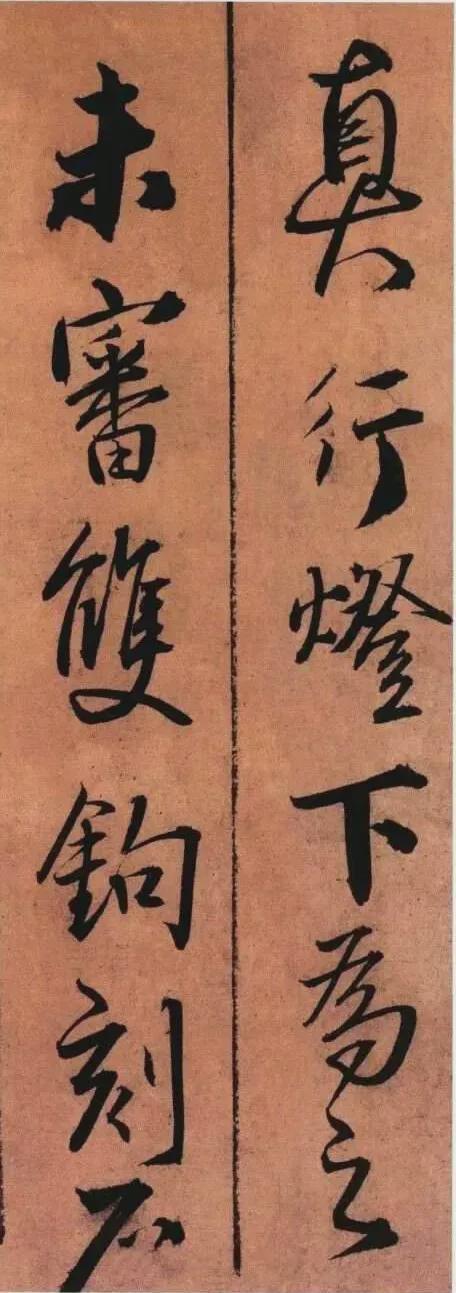 真行燈下為之
未審雙鉤刻石